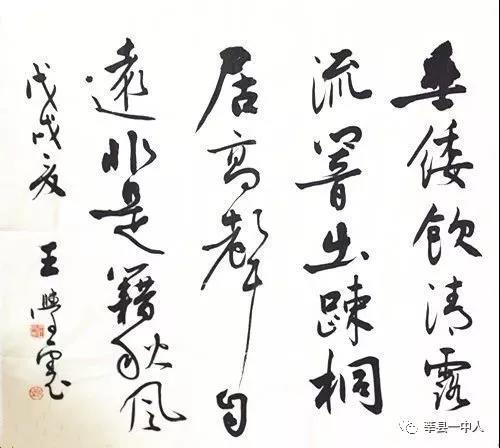 垂倭飲清露
流響出踈桐
居高聲自
遠非是籍秋風
戊戌夏 王
莘县一中人